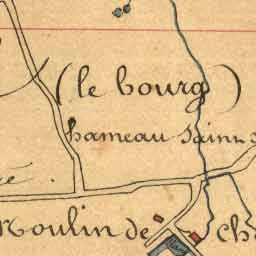 (le bourg)
hameau Saint-
Moulin de